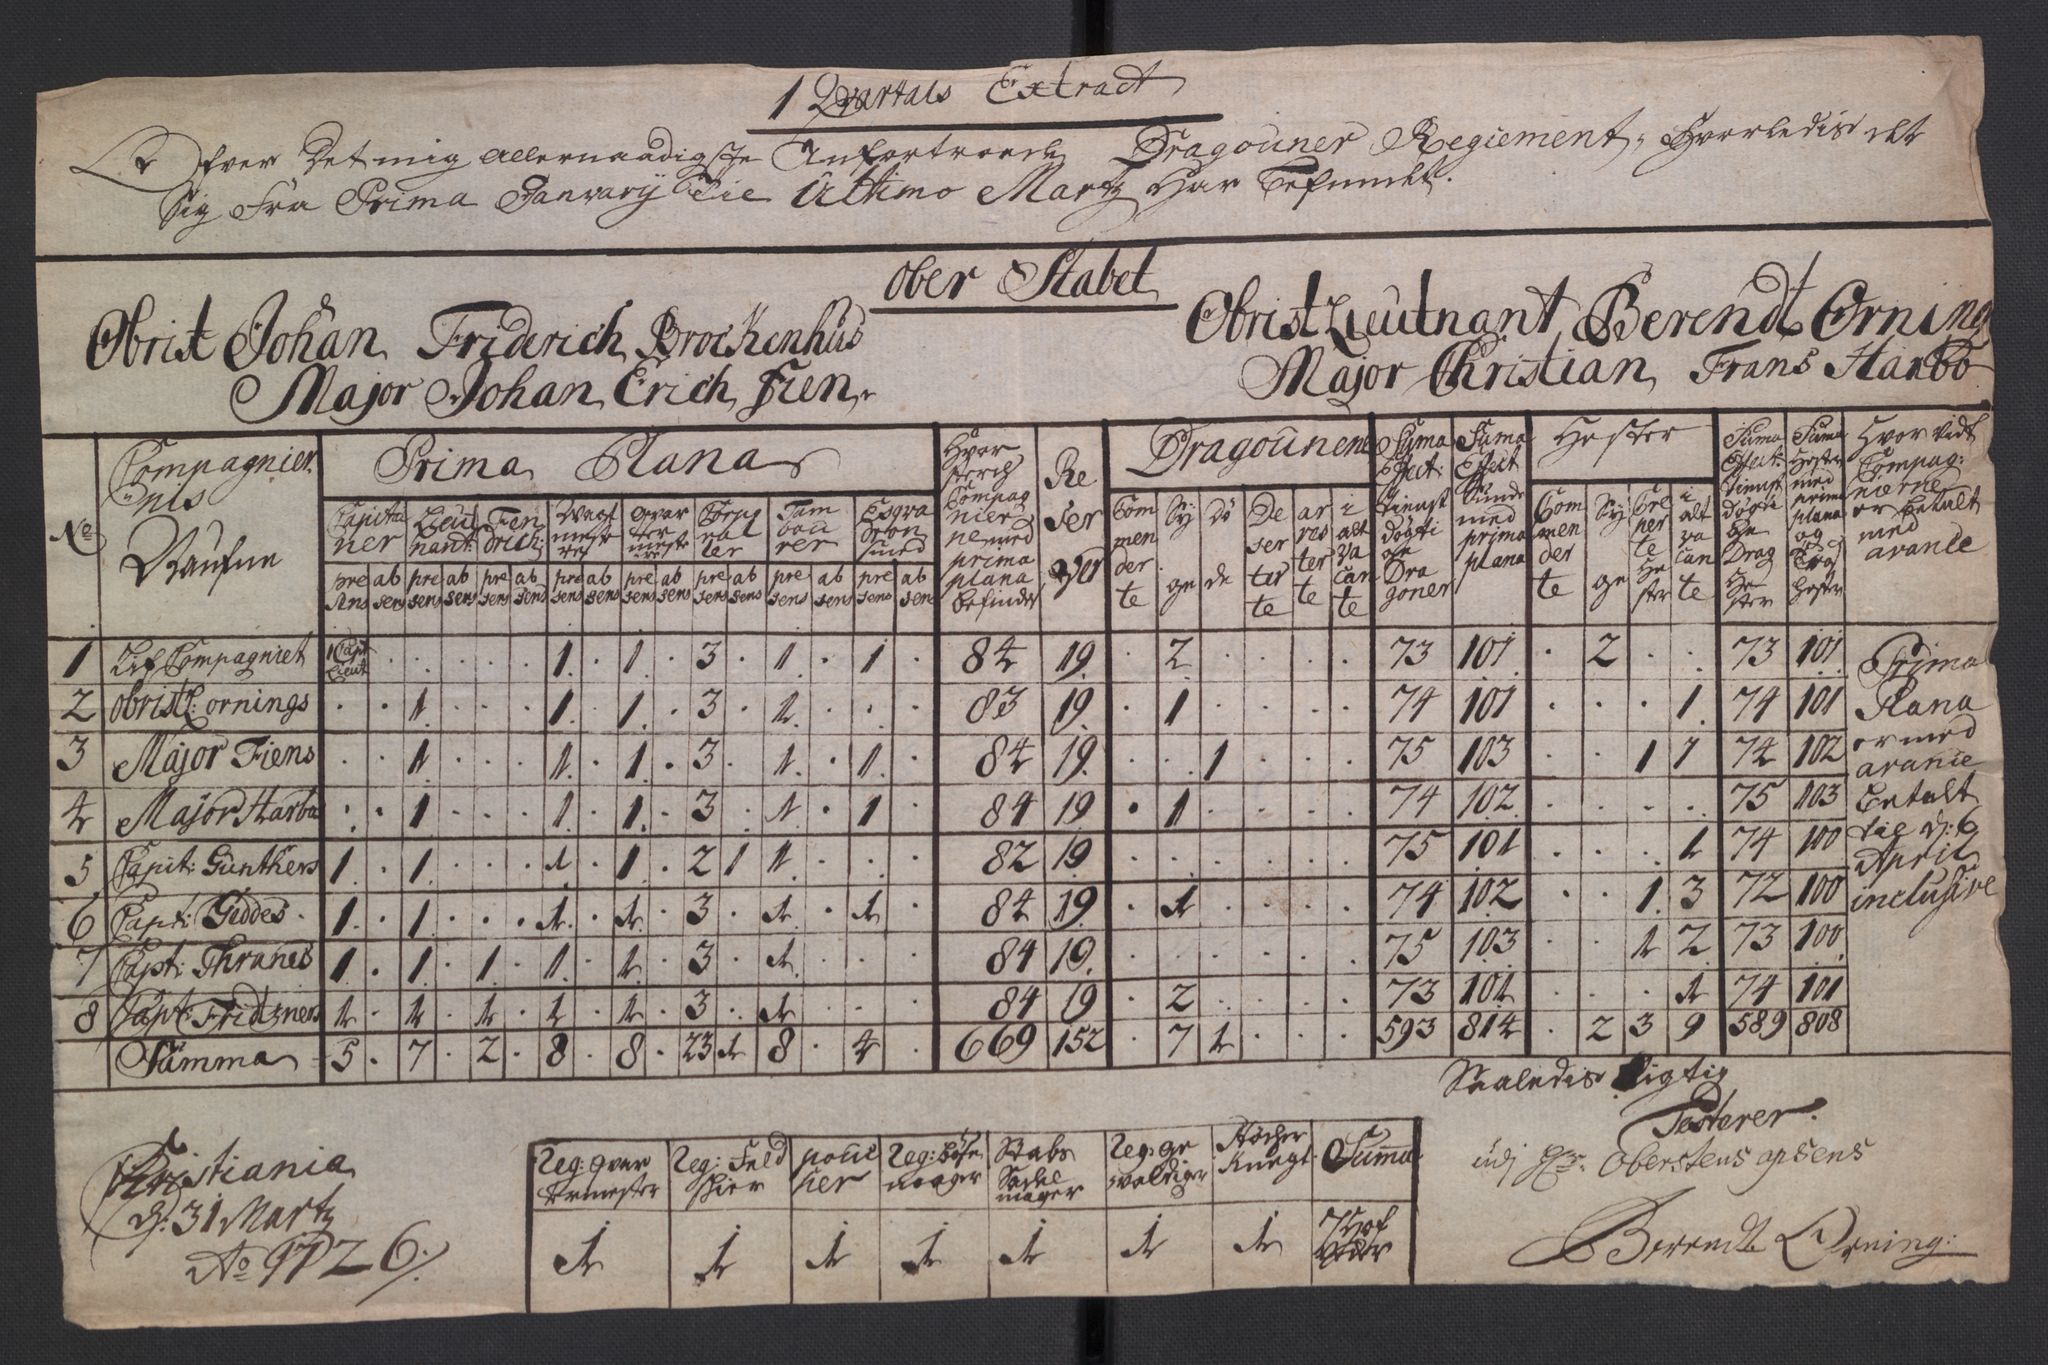 1 Qvartals Extract
Ofver Det mig Allernaadigste Anfortroede Dragouner Regiement, Hvorledis det
Sig Fra Prima Janvarij Til Ultimo Martz Har Befundet.
Ober Stabet
Obrist Johan Friderich Brockenhus
Obrist Lieutnant Berendt Orning
Major Johan Erich Fien
Major Christian Frans Harbo
No
Compagniernis Naufne
Prima Plana
Hvor sterch Compagnierne med prima plana befindes
Reserver
Dragounerne
Suma Effect: dienst dögtige Dragoner
Suma Effect Sunde med prima plana
Hester
Suma Effect: dienst dögtige Drag Hester
Suma Hester med prima plana og Hester
Hvor vidt Compagnierne er betalt med avance
Capitainer Lieutnant: Fendrich: Vagtmestre Qvartermestre Corporaler Tambourer Esqvadronsmed
Commenderte Syge Döde Deserterte arresterte i alt vacante
Commenderte Syge Creperte Hester i alt vacante
presens absens presens absens presens absens presens absens presens absens presens absens presens absens presens absens
1 Lif Compagniet 1 Capt Lieut . . . . . 1 . 1 . 3 . 1 . 1 . 84 19 . 2 . . . . 73 101 . 2 . . 73 101
2 Obristl: Ornings . . 1 . . . 1 . 1 . 3 . 1 . . . 83 19 . 1 . . . . 74 101 . . . 1 74 101
3 Major Fiens . . 1 . . . 1 . 1 . 3 . 1 . 1 . 84 19 . . 1 . . . 75 103 . . 1 1 74 102
4 Major Harbo . . 1 . . . 1 . 1 . 3 . 1 . 1 . 84 19 . 1 . . . . 74 102 . . . . 75 103
5 Capit: Günthers 1 . 1 . . . 1 . 1 . 2 1 1 . . . 82 19 . . . . . . 75 101 . . . 1 74 100
6 Capt: Geddes 1 . 1 . . . 1 . 1 . 3 . 1 . 1 . 84 19 . 1 . . . . 74 102 . . 1 3 72 100
7 Capt: Thranes 1 . 1 . 1 . 1 . 1 . 3 . 1 . . . 84 19 . . . . . . 75 103 . . 1 2 73 100
8 Capt: Fridzners 1 . 1 . 1 . 1 . 1 . 3 . 1 . . . 84 19 . 2 . . . . 73 101 . . . 1 74 101
Summa 5 . 7 . 2 . 8 . 8 . 23 1 8 . 4 . 669 152 . 7 1 . . . 593 814 . 2 3 9 589 808
Prima
Plana
er med
avance
betalt
til d: 6
April
inclusive
Saaledis Rigtig
Testerer.
udj Hr. Oberstens absens
Berendt Orning:
Christiania
d: 31 Martz
Ao 1726.
Reg: Qvartermester Reg: Feldskier Reg: Bösemager Stabs Sadelmager Reg: gevaldiger Stöcher Knegt Suma
1 1 1 1 1 1 1 7